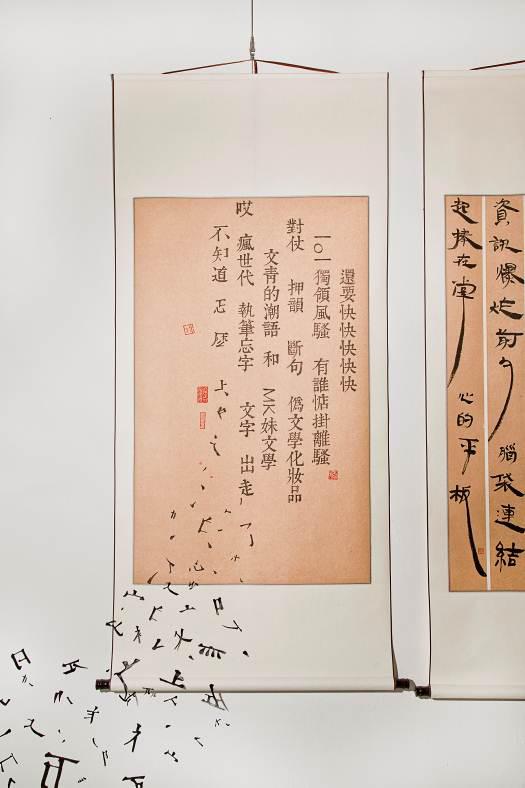 資訊爆炸前夕 腦袋連結
起捧在掌 心的平板
還要快快快快快
一〇一獨領風騷 有誰惦掛離騷
對仗 押韻 斷句 偽文學化妝品
文青的潮語 和 MK妹文學
哎 瘋世代 執筆忘字 文字 出走
不知道